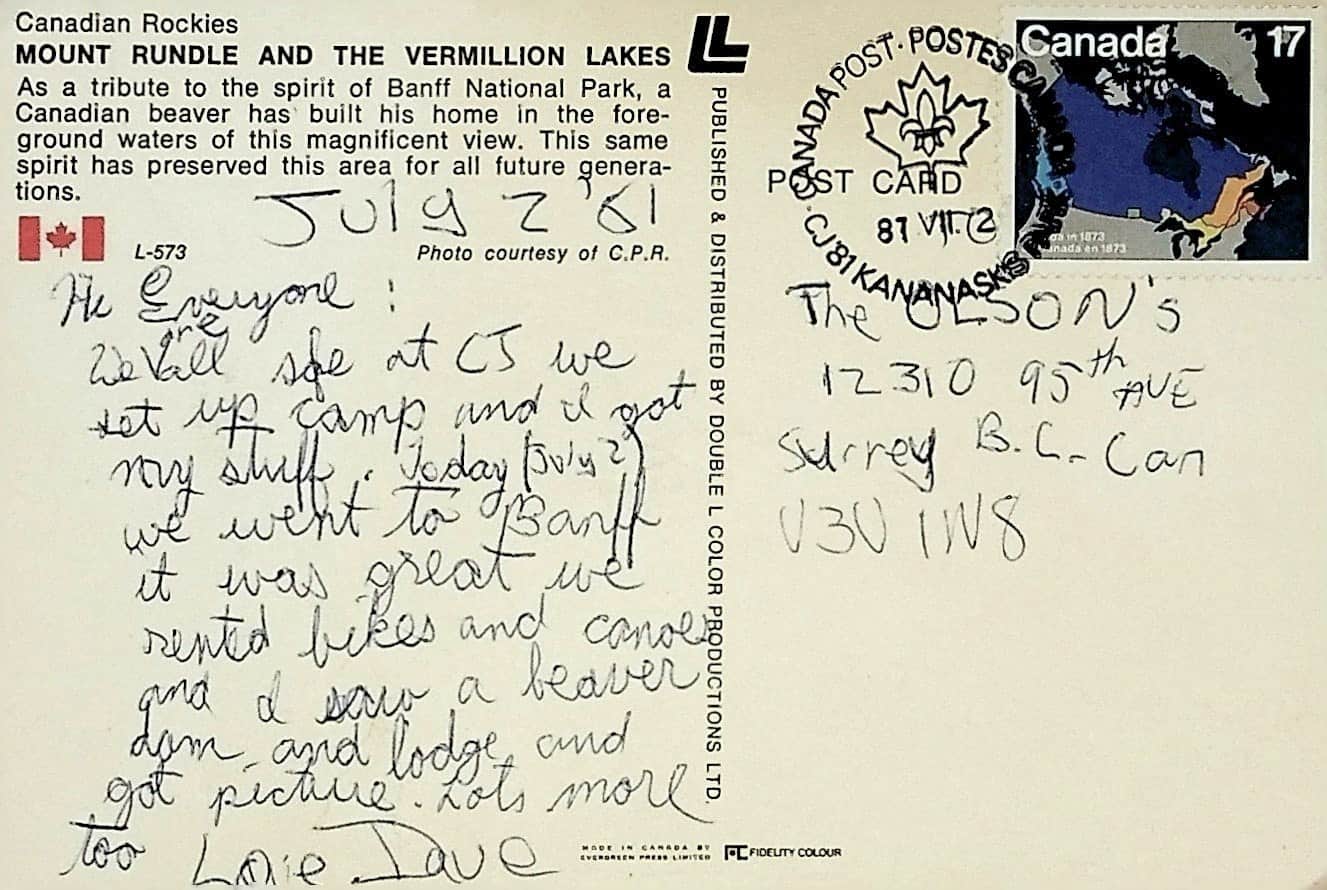 Canadian Rockies
MOUNT RUNDLE AND THE VERMILLION LAKES
As a tribute to the spirit of Banff National Park, a
Canadian beaver has built his home in the fore-
ground waters of this magnificent view. This same
spirit has preserved this area for all future genera-
tions.
July 2 '81
L-573
Photo courtesy of C.P.R.
Hi Everyone!
We are all safe at CJ we
set up camp and I got
my stuff. Today (July 2)
we went to Banff
it was great we
rented bikes and canoes
and I saw a beaver
dam and lodge and
got picture. Lots more
too
Dave
PUBLISHED & DISTRIBUTED BY DOUBLE L COLOR PRODUCTIONS LTD.
MADE IN CANADA BY
EVERGREEN PRESS LIMITED
FIDELITY COLOUR
POST CARD
CANADA POST · POSTES CANADA
CJ'81 KANANASKIS
81 VII 2
Canada 17
in 1873
Canada en 1873
The OLSON's
12310 95th AVE
Surrey B.C. Can
V3V 1W8